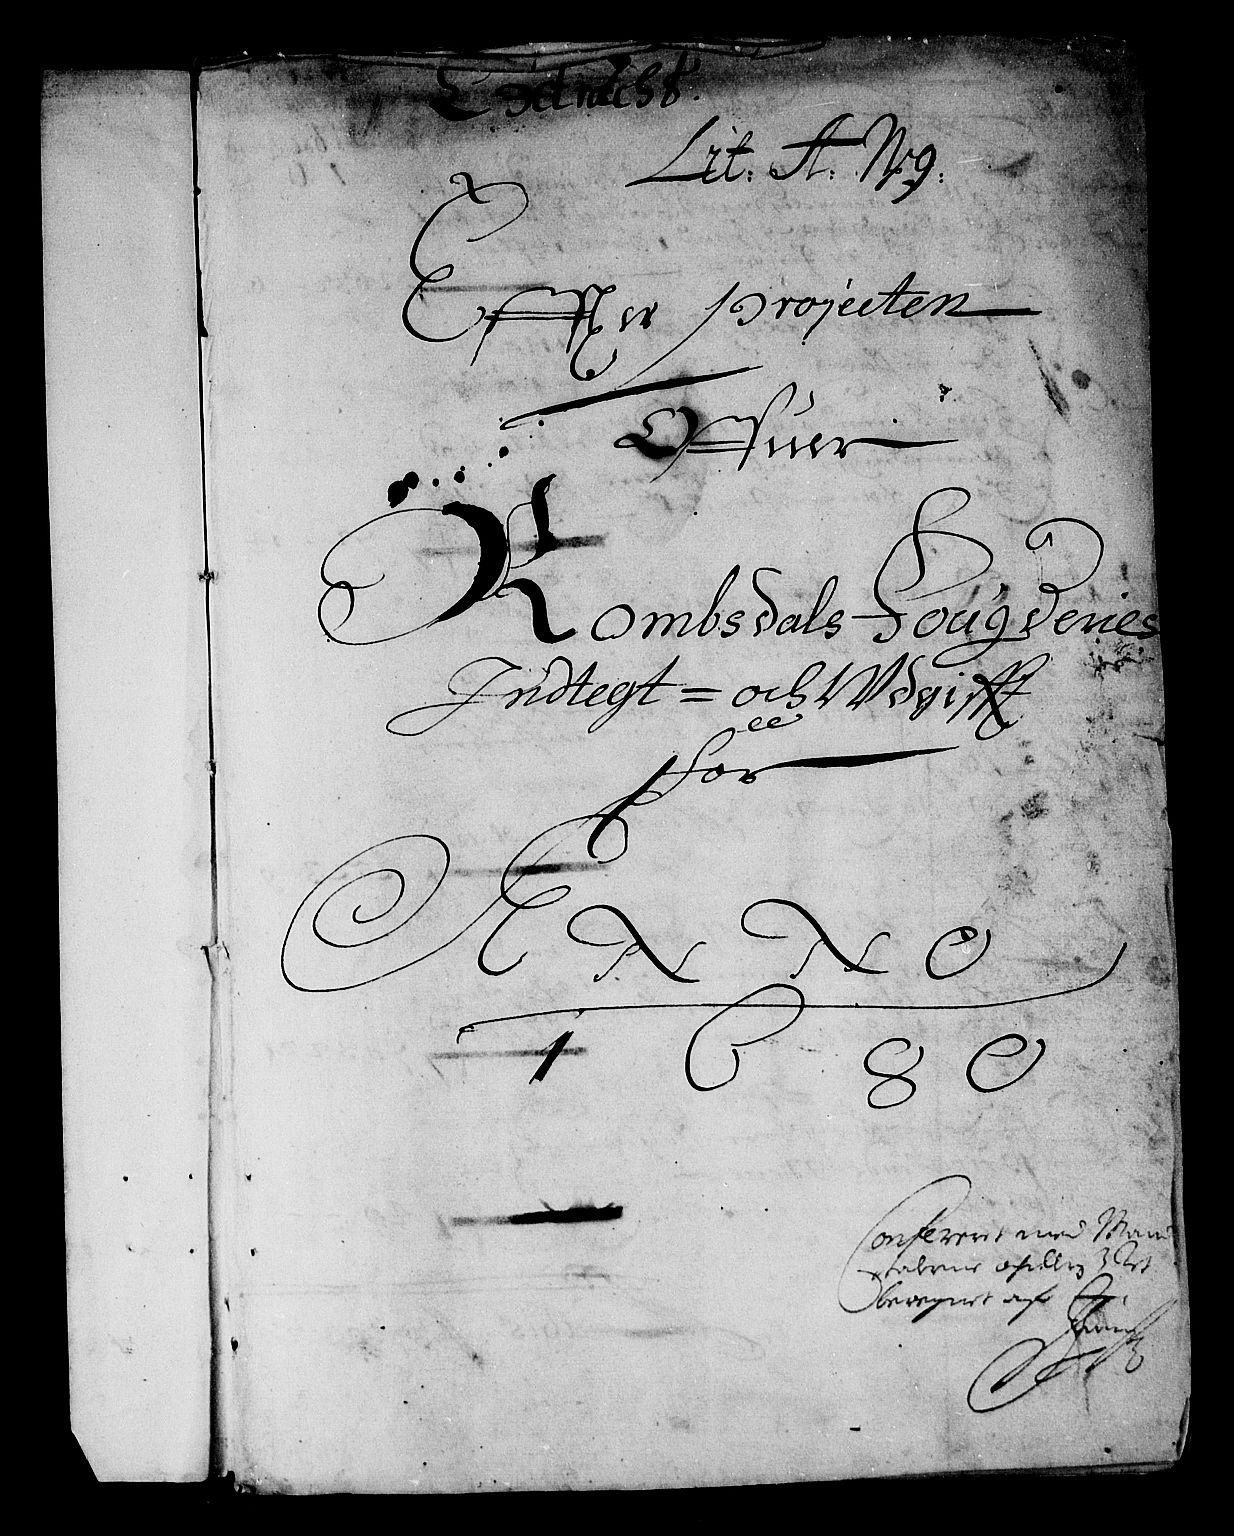 Extract
Lit. A. No 9.
Effter projecten
Offuer
Rombsdals Fougderies
Indtegt = och Wdgifft
for
ANNO
1680
Confererit med Man
talerne
beregnet aff